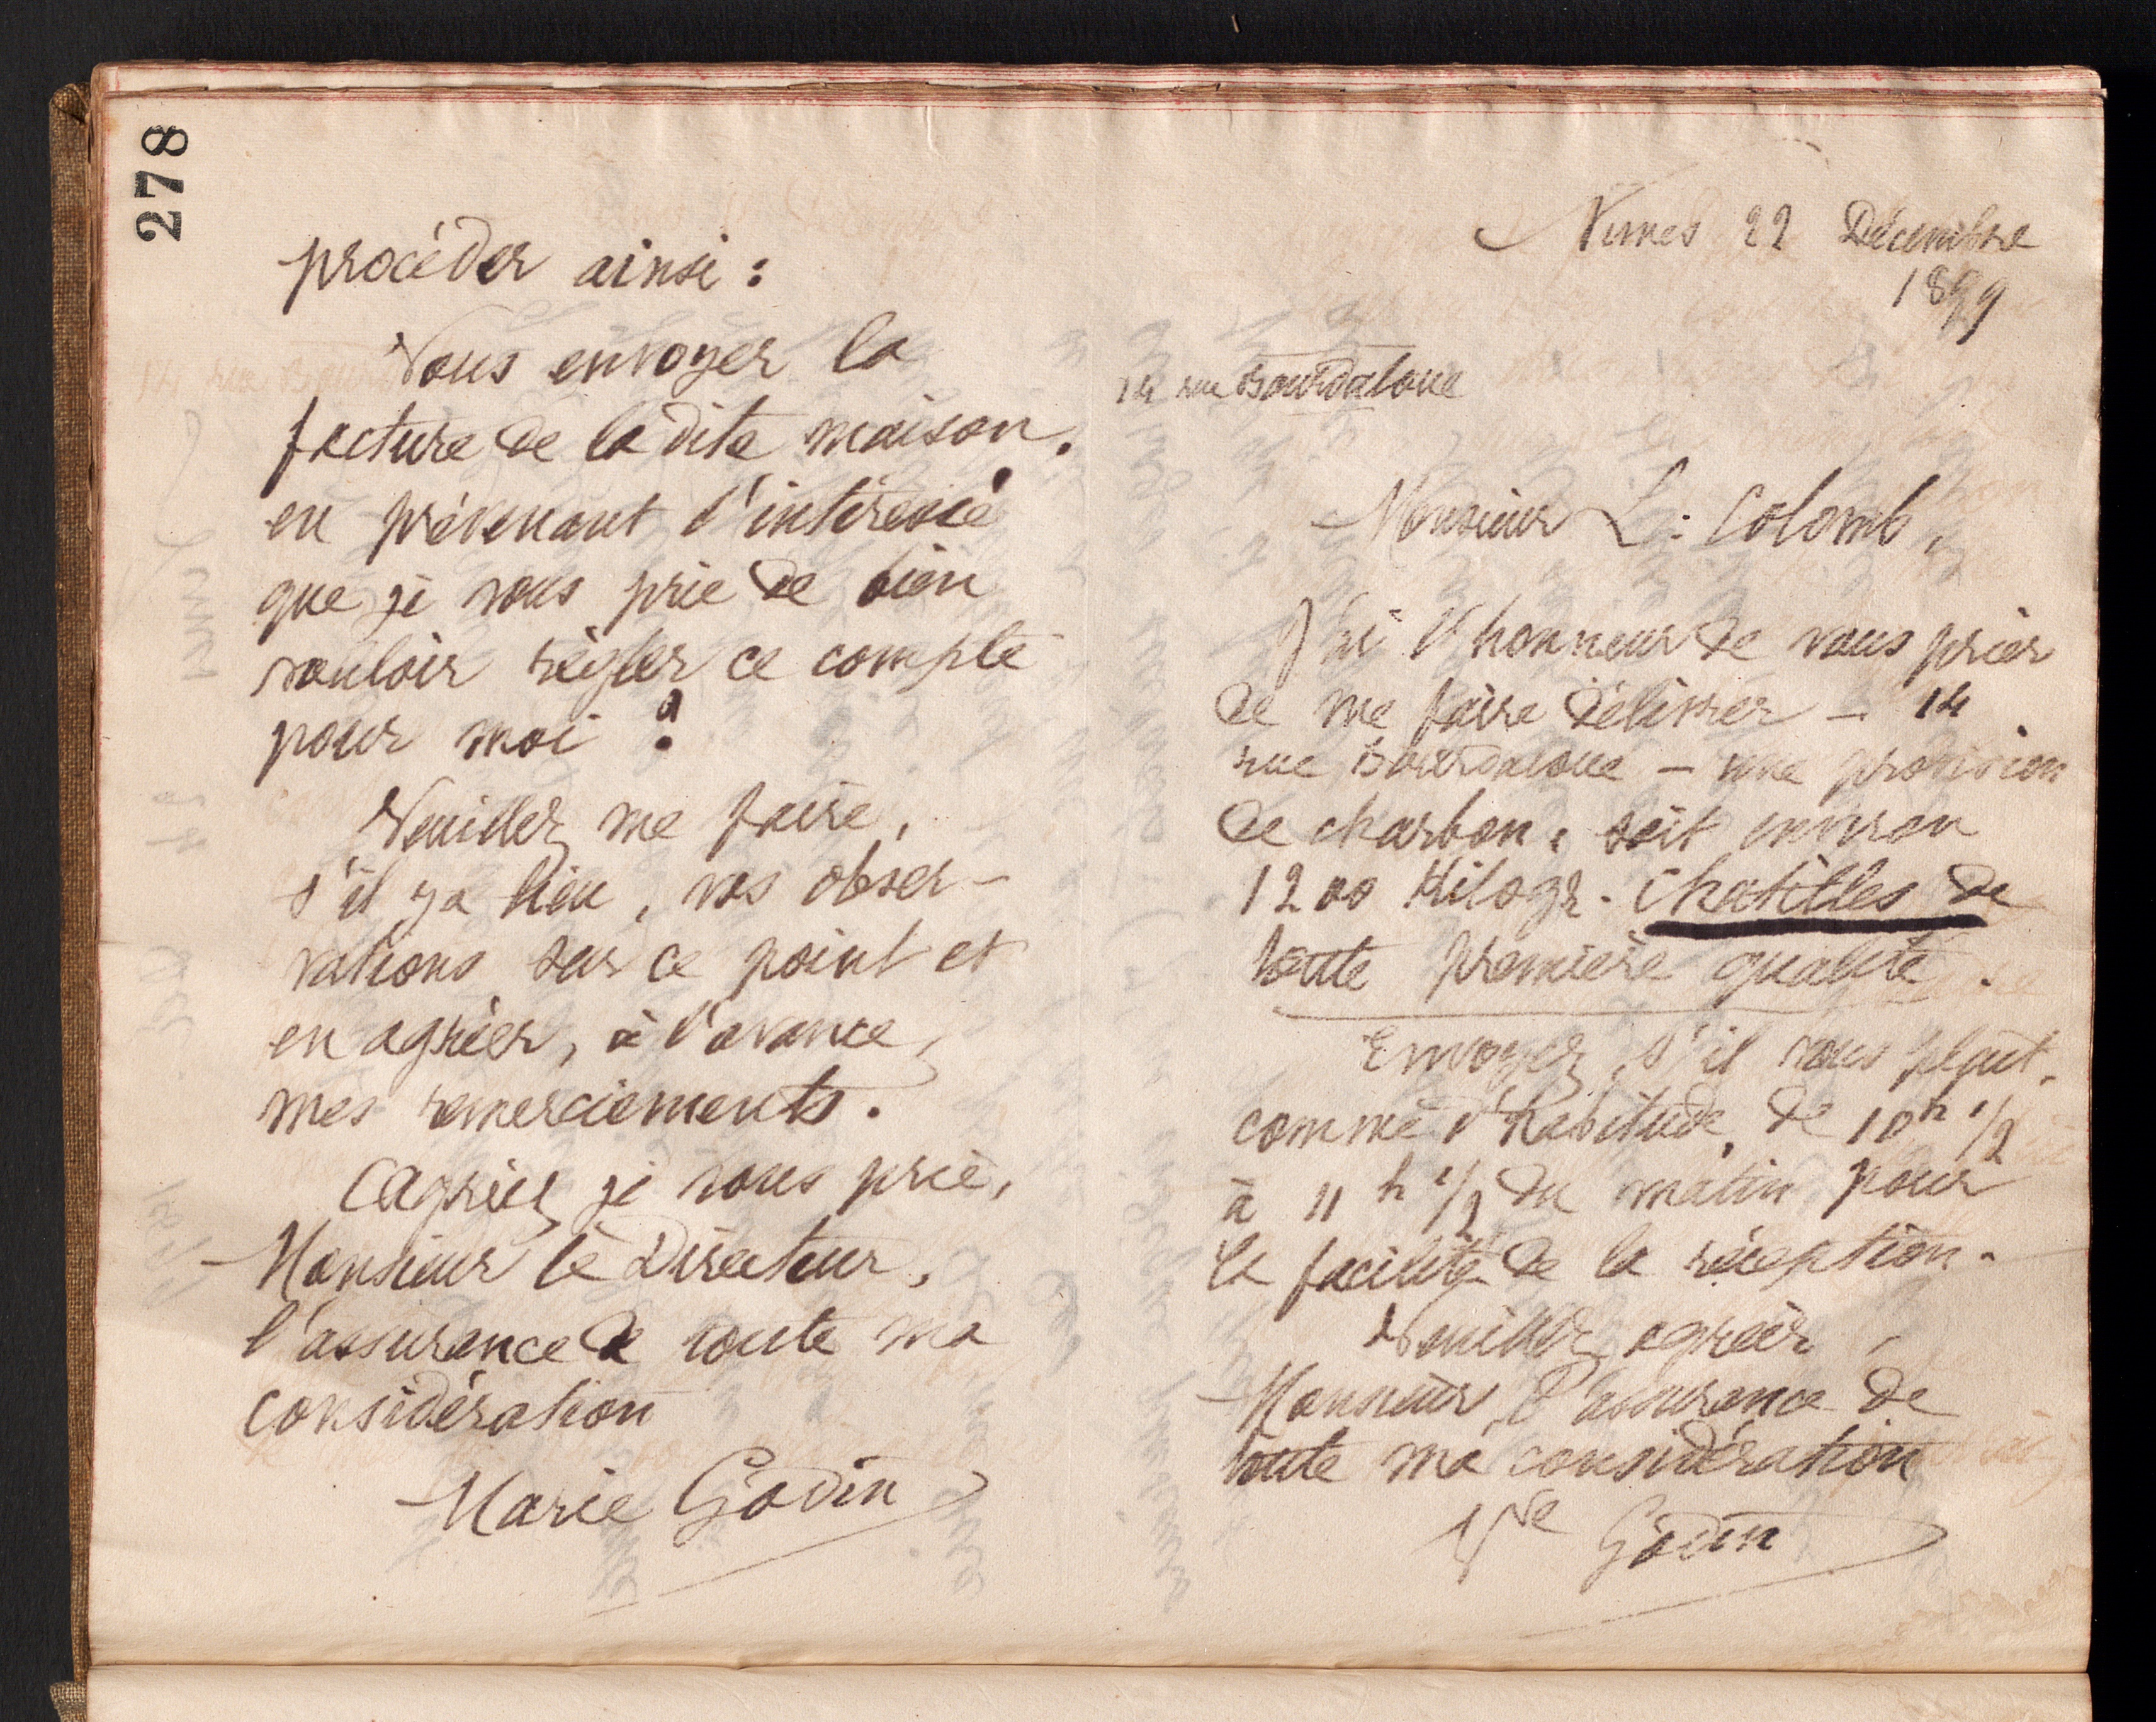 278
procéder ainsi :
Vous envoyer la
facture de la dite maison,
en prévenant l'intéressé
que je vous prie de bien
vouloir régler ce compte
pour moi !
Veuillez me faire,
s'il y a lieu, vos obser-
vations sur ce point et
en agréer, à l'avance,
mes remerciements.
Agréez je vous prie,
Monsieur le Directeur,
l'assurance de toute ma
considération
Marie Godin
Nimes 22 Décembre
1899
14 rue Bourdaloue
Monsieur L. Colomb,
J'ai l'honneur de vous prier
de me faire délivrer - 14
rue Bourdaloue - une provision
de charbon, soit environ
1200 Kilogr. chatilles de
toute première qualité.
Envoyez, s'il vous plaît,
comme d'habitude, de 10h 1/2
à 11h 1/2 du matin pour
la facilité de la réception.
Veuillez agréer,
Monsieur, l'assurance de
toute ma considération
Vve Godin